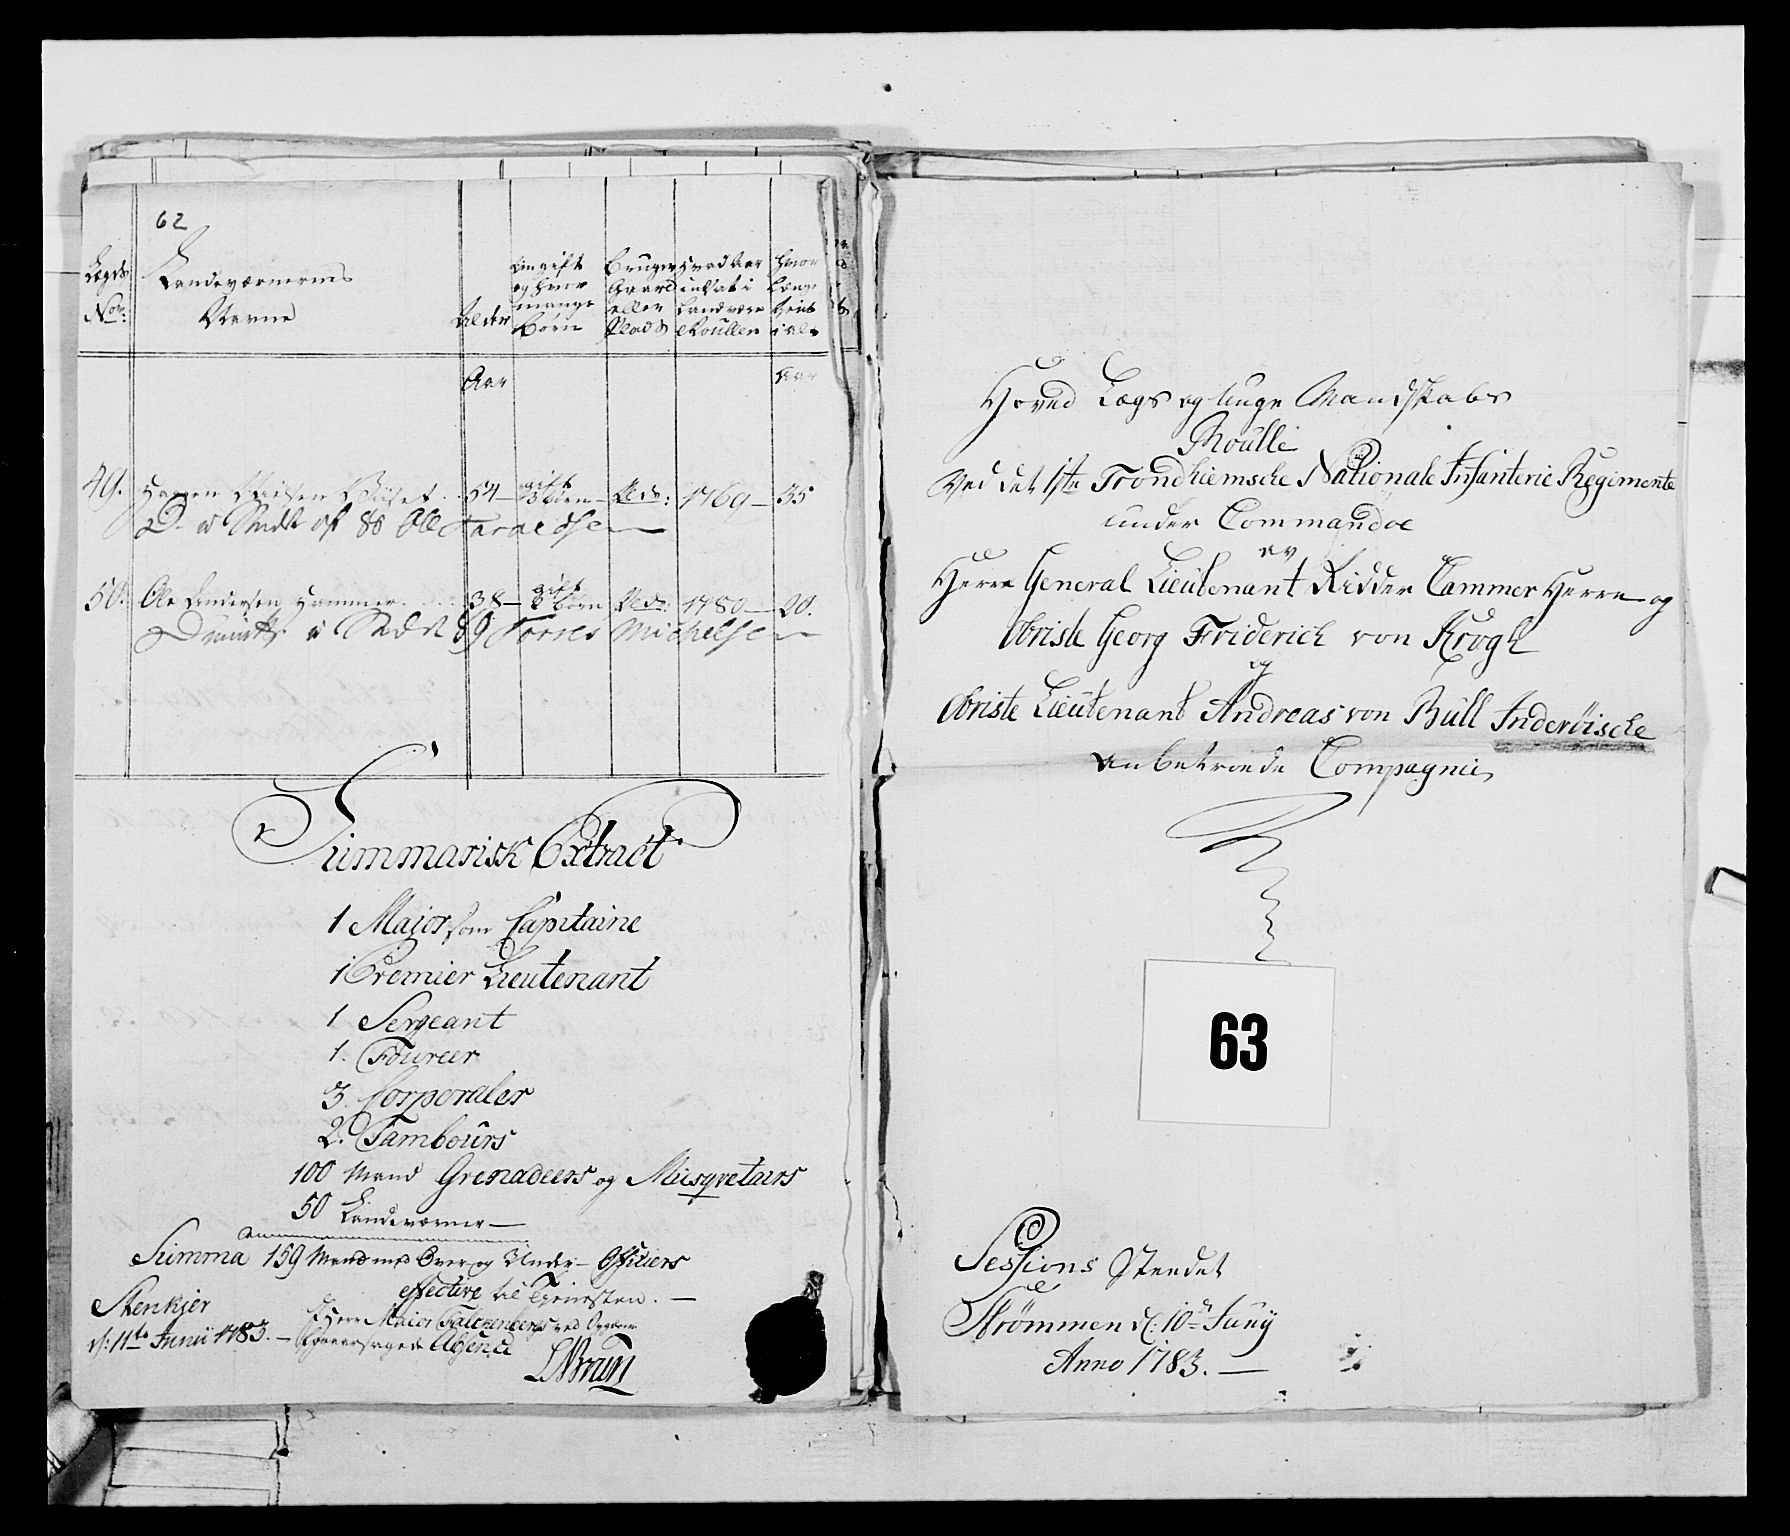 62
Lægds No:
Landeværnernes Navne
Alder
Um gift og hvor mange Børn
Bruger Gaard eller Plads
Hvad Aar indsat i Landværn Roullen
Hvor Længe tient i alt
Aar
Aar
49.
54 - gift 3 Børn - Plds: 1769 - 35
50. Ole Andersen Hammer 38 - gift 3 Børn Plds: 1780 - 20.
89 Torres Michelsen
Summarisk Extract
1 Major som Capitaine
1 Premier Lieutenant
1 Sergeant
1. Foureer
3. Corporaler
2. Tambours
100 Mand Grenadeers og Musqvetairs
50 Landeværner
Summa 159 Mand med Over og Under-Officiers
effective til Tjenesten.
Stenkjer
d: 11te Junii 1783.
I Herr Major Falckenbergs ved
Absence
Hoved Lægs og Unge Mandskabs
Roulle
Ved det 1ste Trondhiemsche Nationale Infanterie Regimente
under Commandoe
av
Herre General Lieutenant Ridder Cammer Herre og
Obriste Georg Friderich von Krogh
og
Obriste Lieutenant Andreas von Bull Inderöische
anbetroede Compagnie,
63
Sessions Stædet
Strømmen d: 10de Juny
Anno 1783.